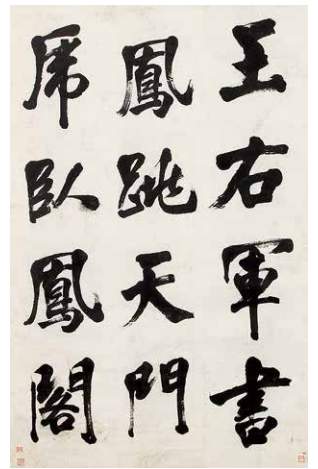 王右軍書
鳳跳天門
虎臥鳳閣